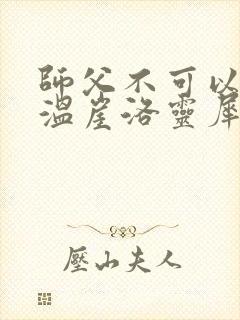 師父不可以
溫崖洛靈犀
壓山夫人